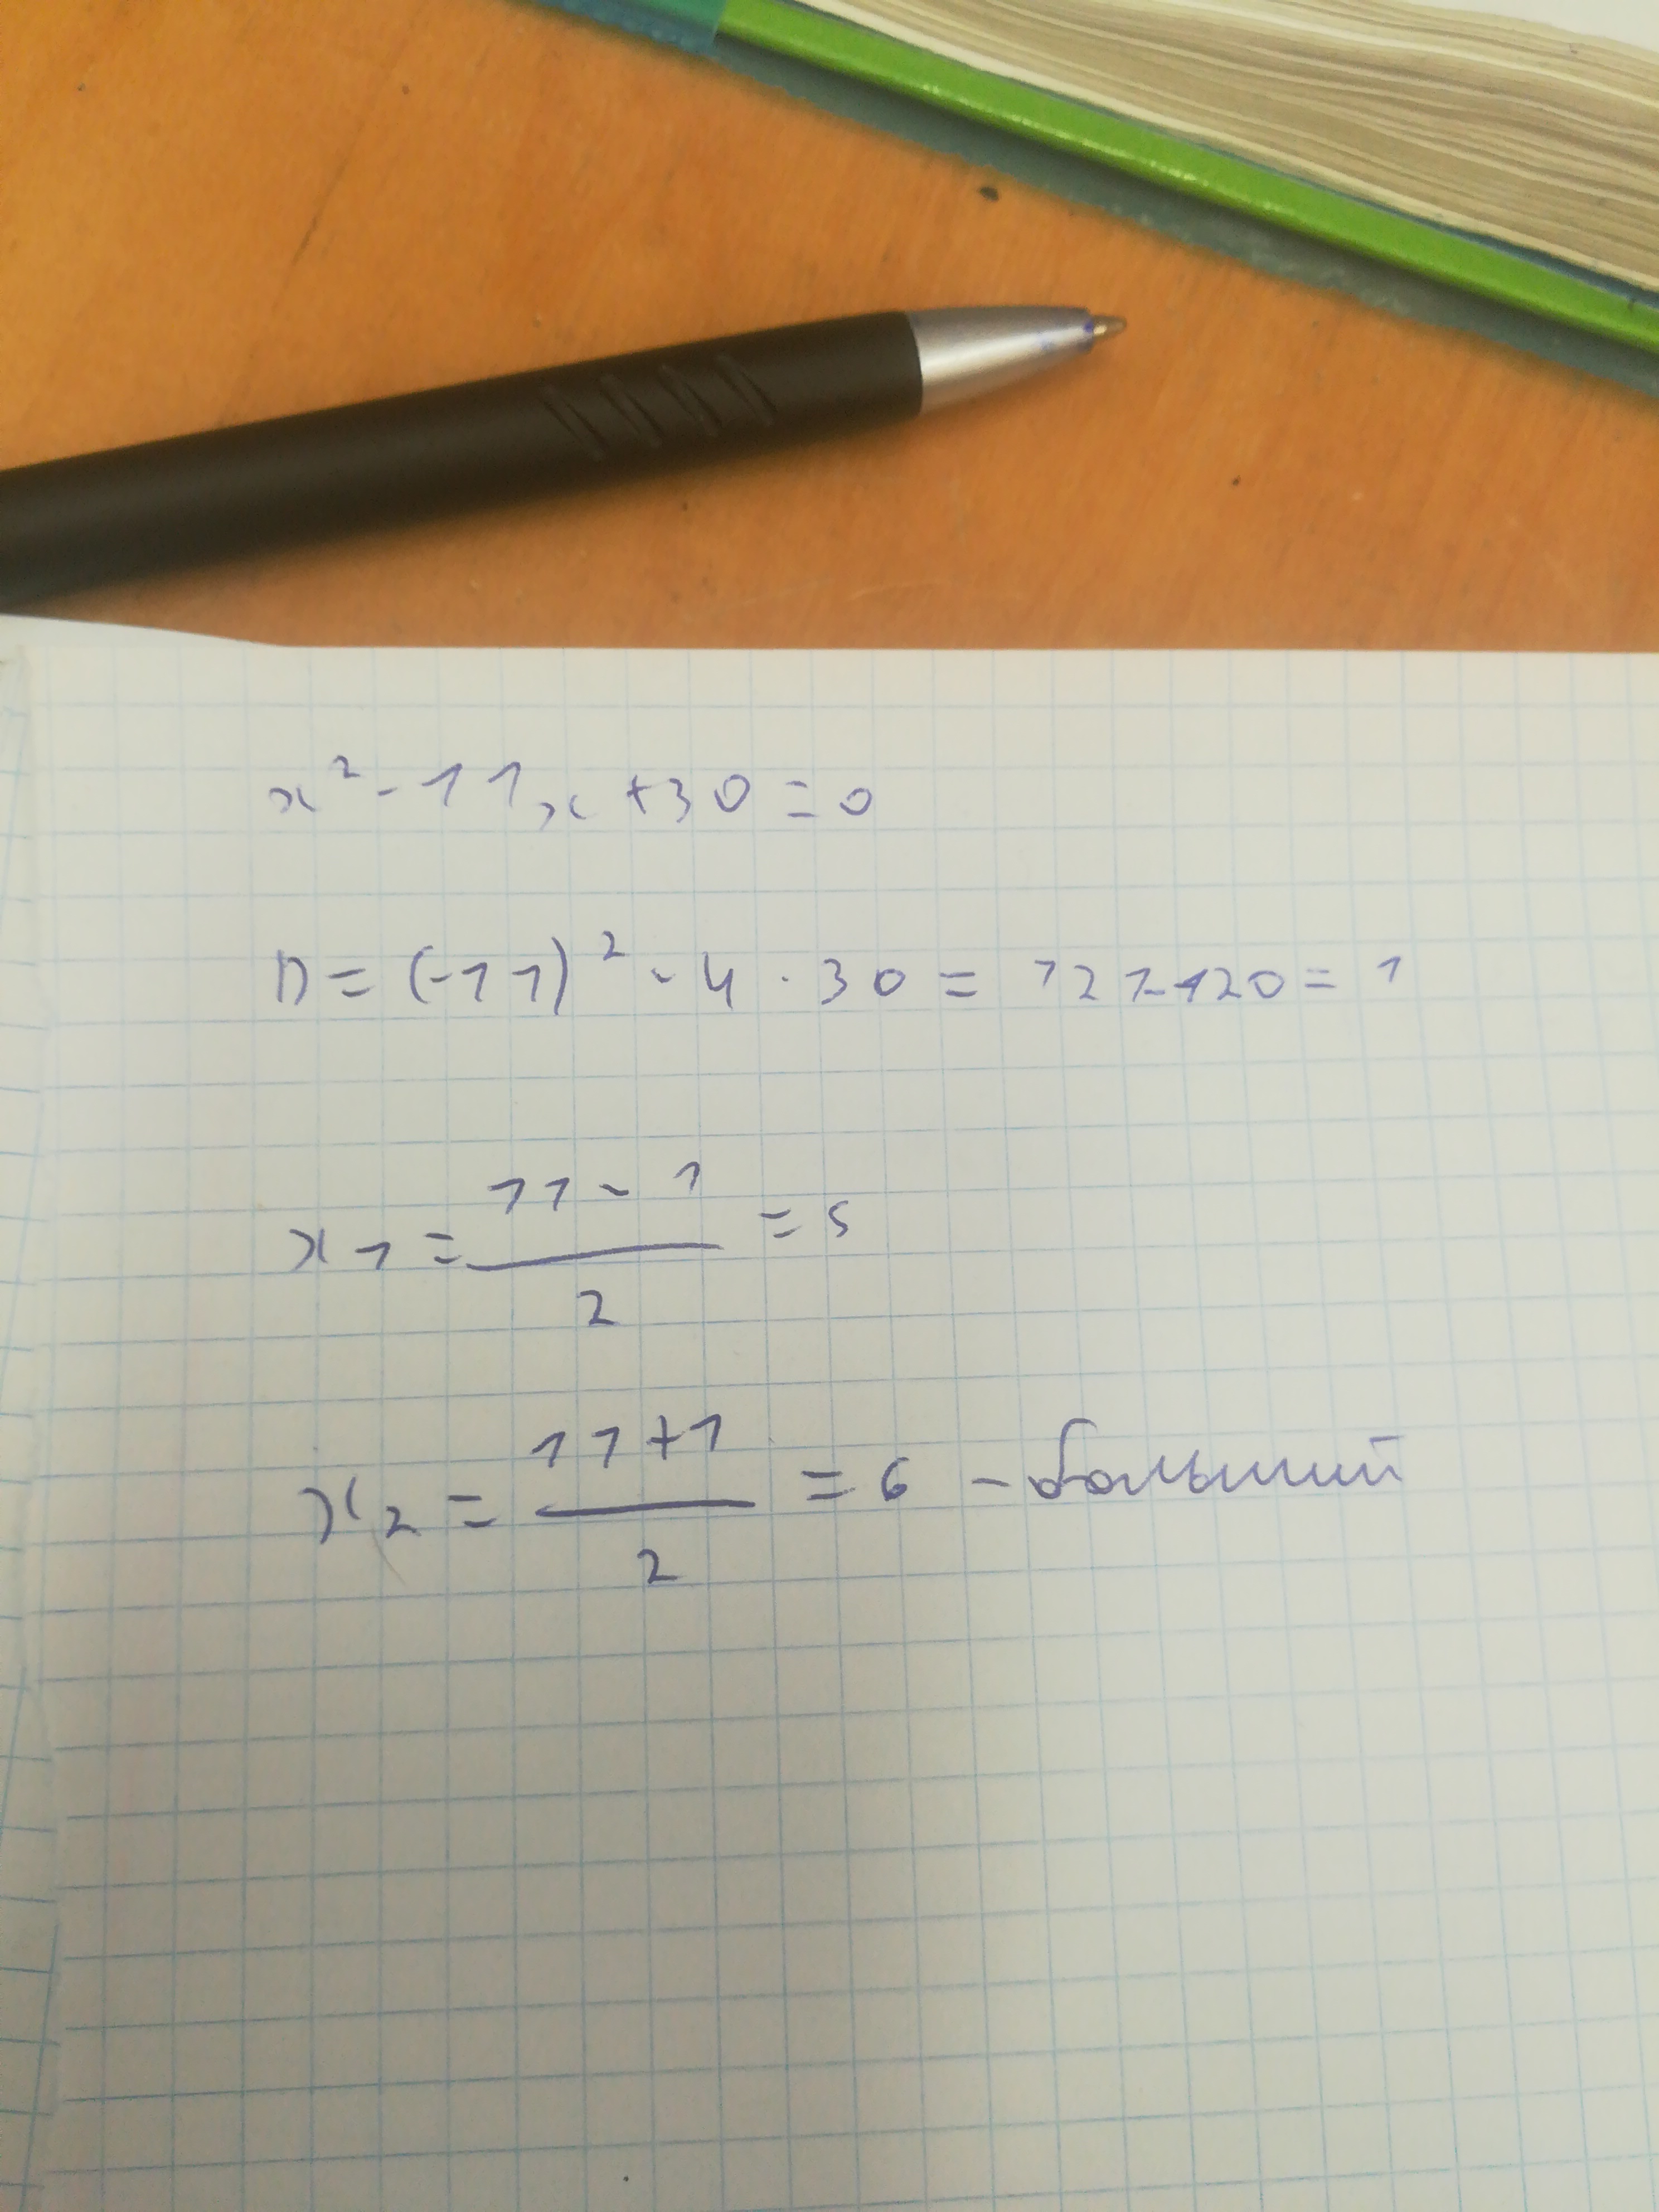 x² - 11x + 30 = 0
D = (-11)² - 4 · 30 = 121 - 120 = 1
x₁ = (11 - 1)/2 = 5
x₂ = (11 + 1)/2 = 6 - больший